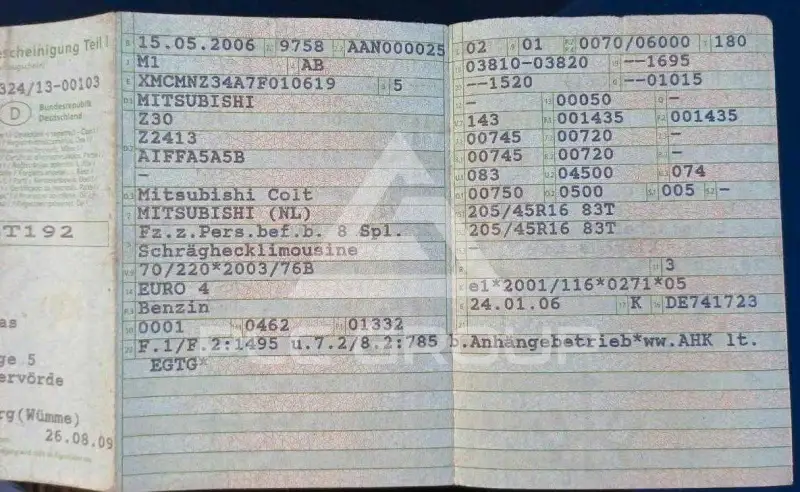 escheinigung Teil I
324/13-00103
D
Bundesrepublik
Deutschland
T192
as
ge 5
ervörde
rg(Wümme)
26.08.09
15.05.2006 9758 AAN000025
M1 AB
XMCMNZ34A7F010619 5
MITSUBISHI
Z30
Z2413
AIFFA5A5B
–
Mitsubishi Colt
MITSUBISHI (NL)
Fz.z.Pers.bef.b. 8 Spl.
Schräghecklimousine
70/220*2003/76B
EURO 4
Benzin
0001 0462 01332
F.1/F.2:1495 u.7.2/8.2:785 b.Anhängebetrieb*ww.AHK lt.
EGTG*
02 01 0070/06000 180
03810-03820 --1695
--1520 --01015
- 00050 -
143 001435 001435
00745 00720 -
00745 00720 -
083 04500 074
00750 0500 005 -
205/45R16 83T
205/45R16 83T
-
- 3
e1*2001/116*0271*05
24.01.06 K DE741723
GROUP